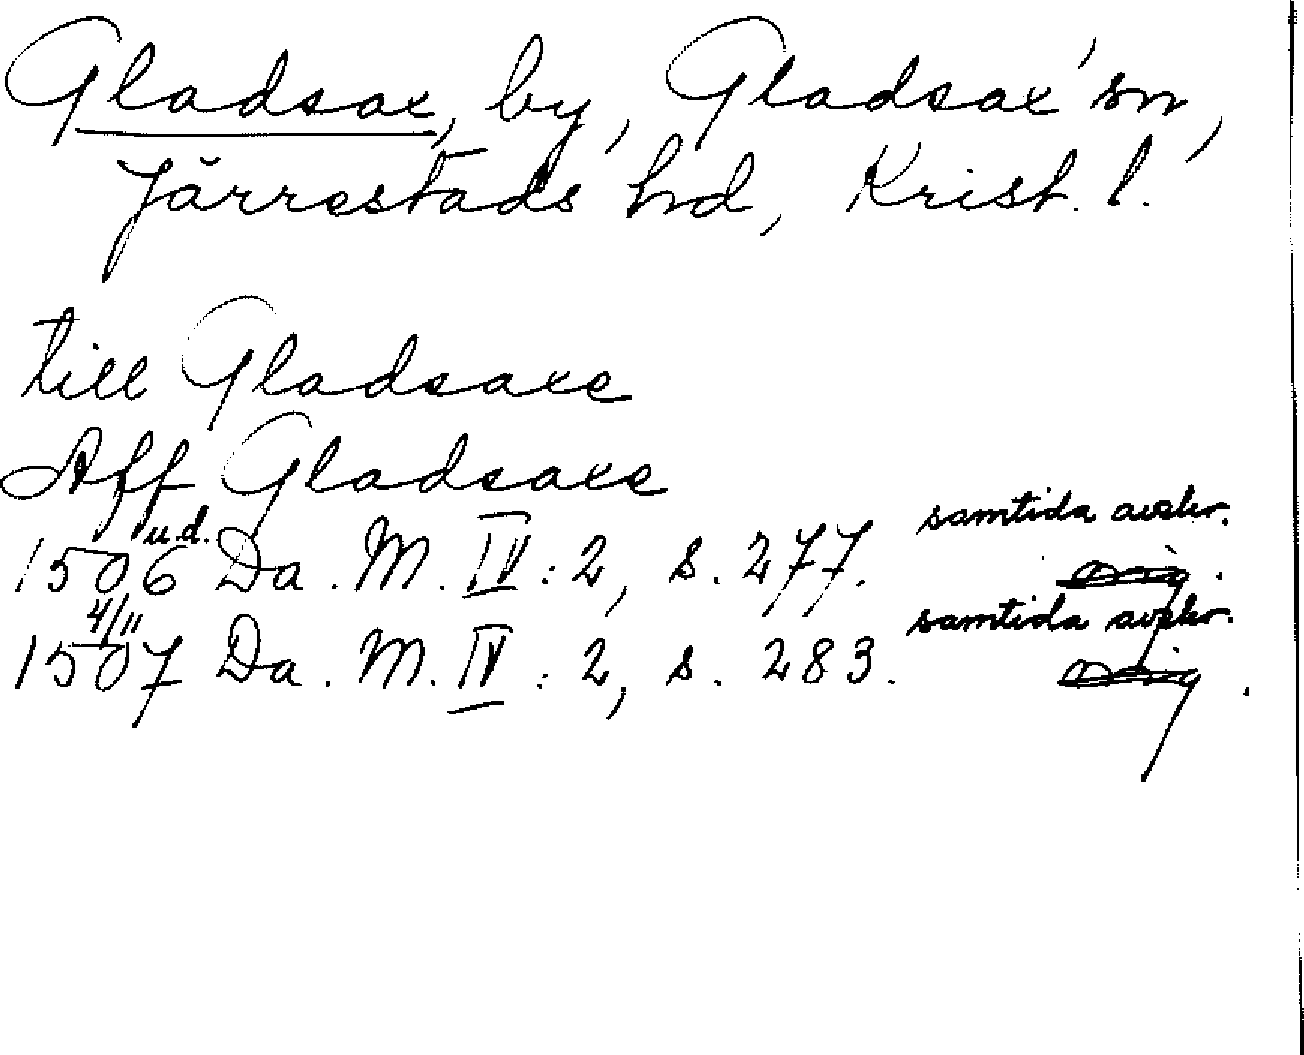 Gladsax, by, Gladsax' sn,
Järrestads hd, Krist. l.
till Gladsaxe
Aff Gladsaxe
samtida avskr.
1506 u.d. Da. M. IV: 2, s. 277. orig.
samtida avskr.
1507 4/11 Da. M. IV: 2, s. 283. orig.